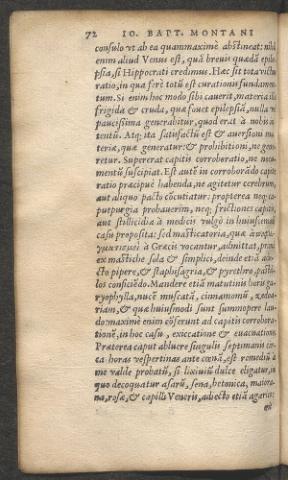 72 IO. BAPT. MONTANI
consulo ut ab ea quammaximè abstineat: nihil
enim aliud Venus est, quā brevis quædā epile-
psia, si Hippocrati credimus. Hæc sit tota victus
ratio, in qua ferè totū est curationis fundamen-
tum. Si enim hoc modo sibi caverit, materia illa
frigida & cruda, quæ fovet epilepsiā, nulla vel
paucissima generabitur, quod erat à nobis in
tentū. Atq; ita satisfactū est & aversioni ma
teriæ, quæ generatur: & prohibitioni, ne gene
retur. Supererat capitis corroboratio, ne nocu
mentū suscipiat. Est autē in corroborādo capite
ratio præcipuè habenda, ne agitetur cerebrum,
aut aliquo pacto cōcutiatur: propterea neq;
putpurgia probauerim, neq; frictiones capitis,
aut stillicidia à medicis vulgò in huiuscemodi
casu proposita: sed masticatoria, quæ
à Græcis vocantur, admittat,
ex mastiche sola & simplici, deinde etiā
cto pipere, & staphisagria, & pyrethro, pastil-
los conficiēdo. Mandere etiā matutinis horis ga
ryophylla, nucē muscatā, cinnamomū, zedoa-
riam, & quæ huiusmodi sunt summopere lau-
do: maximè enim cōferunt ad capitis corrobora-
tionē, in hoc casu, exiccationē & evacuationē.
Præterea caput abluere singulis septimanis cir-
ca horas vespertinas ante cœnā, est remediū à
me valde probatū, si lixiviū dulce eligatur, in
quo decoquatur asarū, sena, betonica, maiora-
na, rosæ, & capilli Veneris, adiecto etiā agarico: